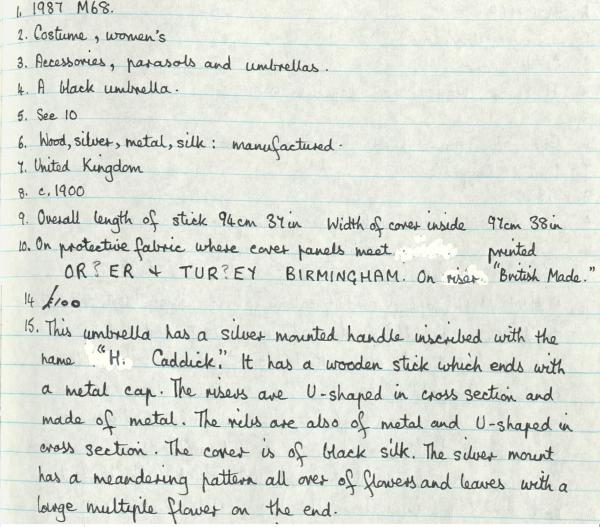 1. 1987 M68.
2. Costume, women's
3. Accessories, parasols and umbrellas.
4. A black umbrella.
5. See 10
6. Wood, silver, metal, silk: manufactured.
7. United Kingdom
8. c.1900
9. Overall length of stick 94cm 37in Width of cover inside 97cm 38in
10. On protective fabric where cover panels meet printed
OR?ER & TUR?EY BIRMINGHAM. On riser "British Made."
14 £100
15. This umbrella has a silver mounted handle inscribed with the
name "H. Caddick." It has a wooden stick which ends with
a metal cap. The risers are U-shaped in cross section and
made of metal. The ribs are also of metal and U-shaped in
cross section. The cover is of black silk. The silver mount
has a meandering pattern all over of flowers and leaves with a
large multiple flower on the end.